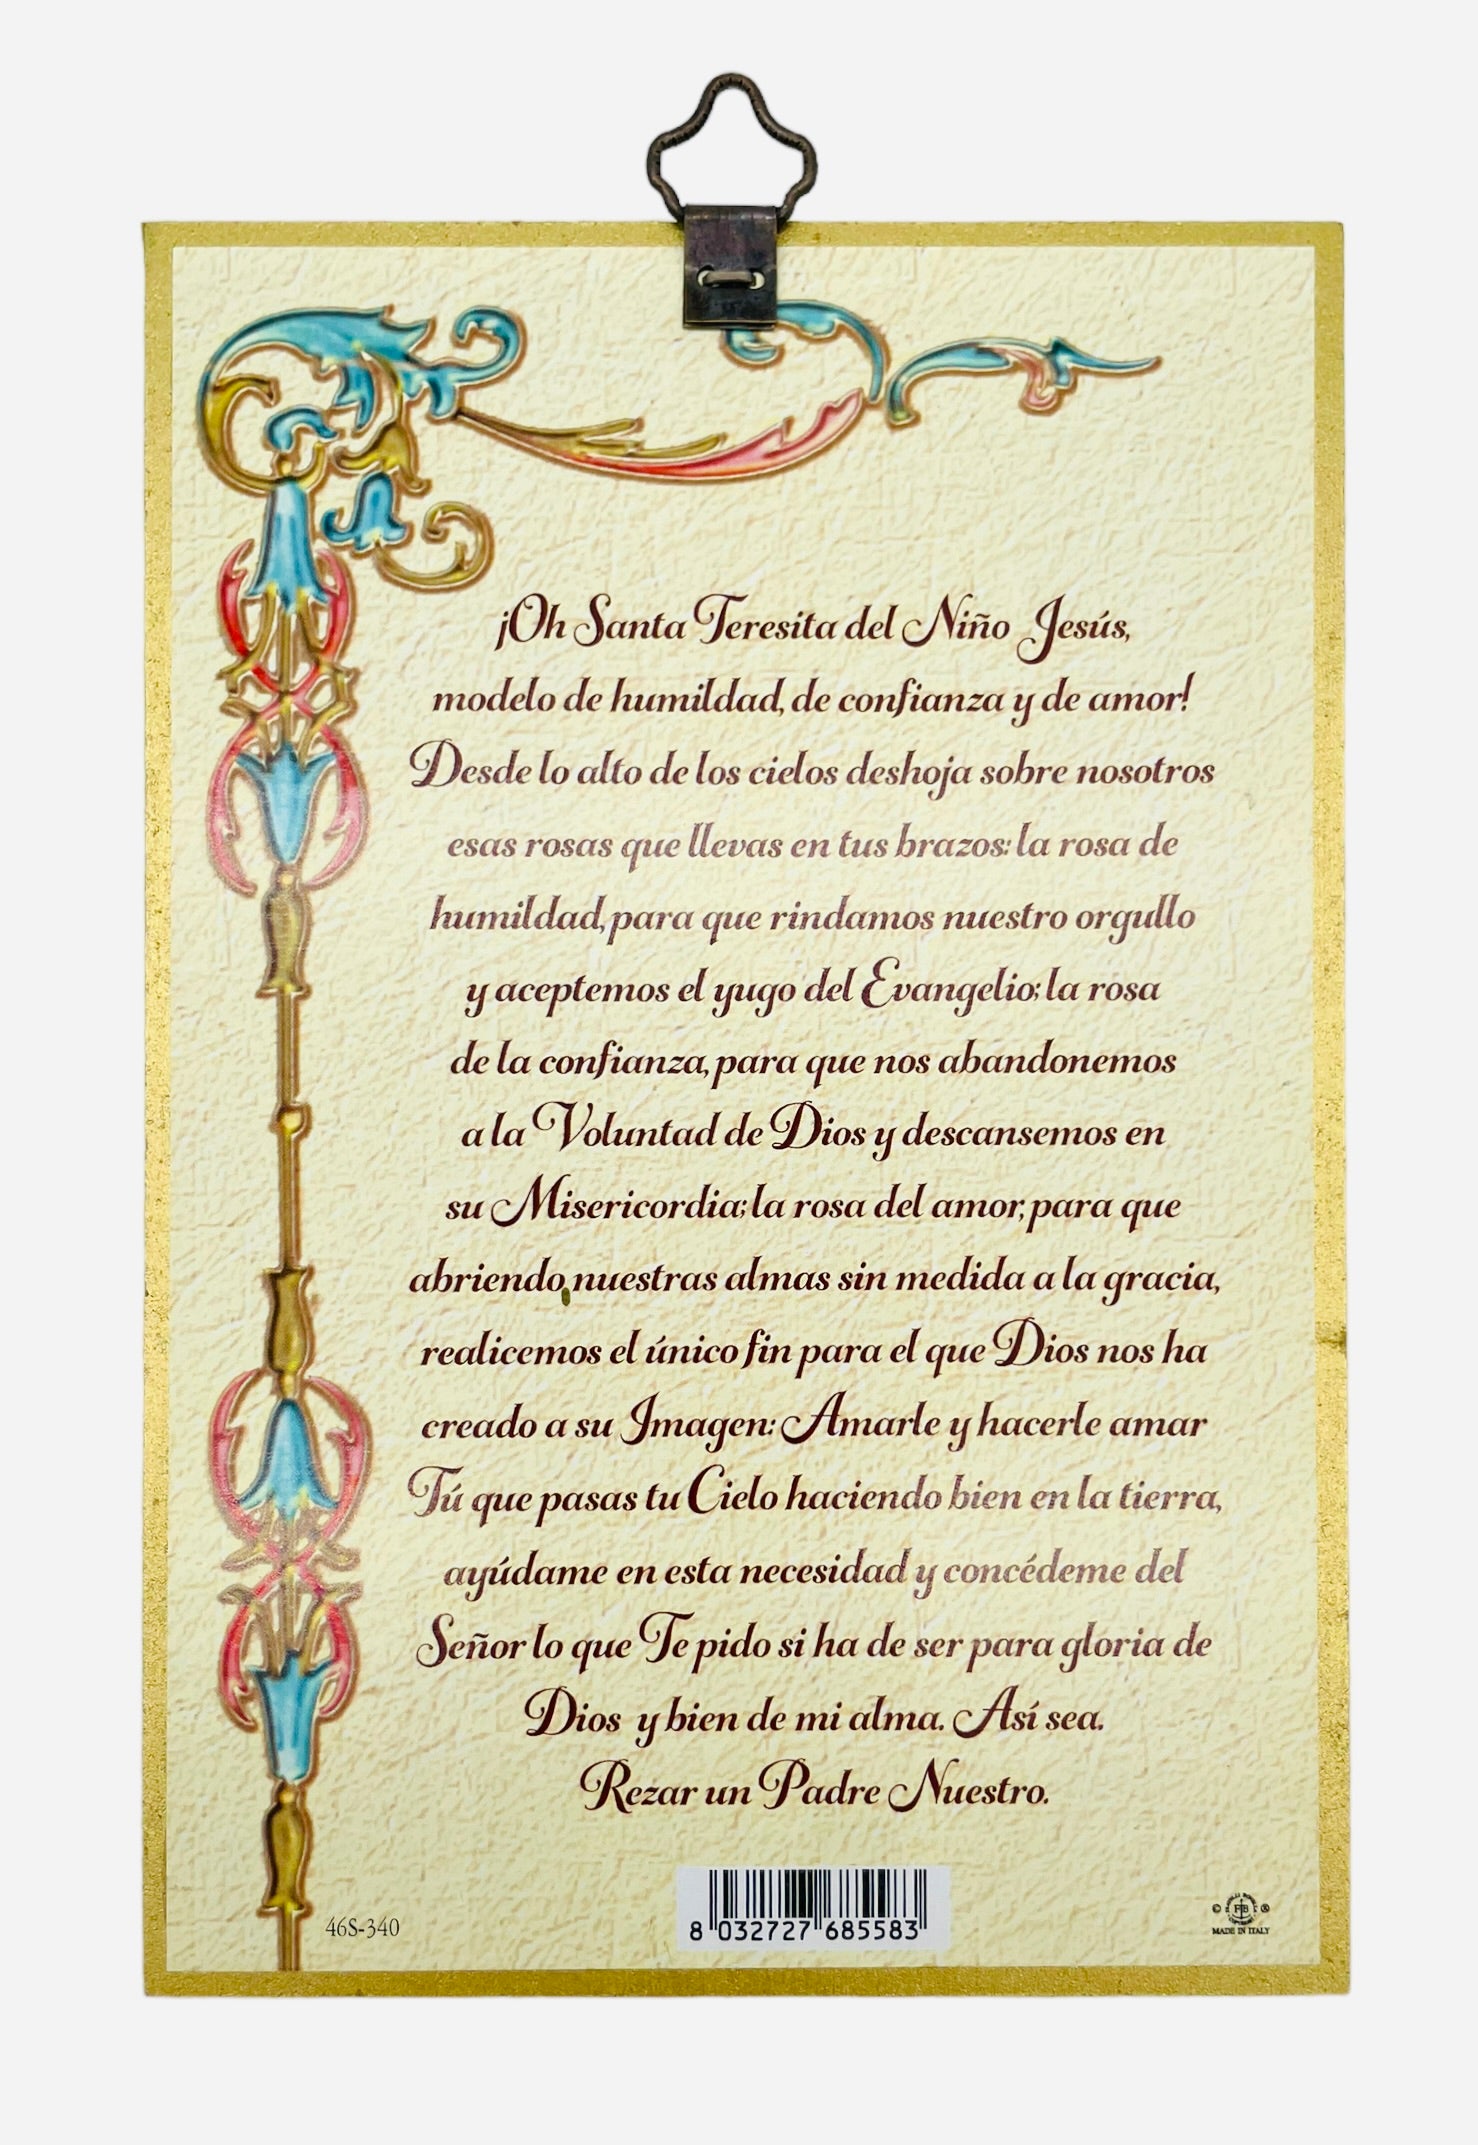 ¡Oh Santa Teresita del Niño Jesús,
modelo de humildad, de confianza y de amor!
Desde lo alto de los cielos deshoja sobre nosotros
esas rosas que llevas en tus brazos: la rosa de
humildad, para que rindamos nuestro orgullo
y aceptemos el yugo del Evangelio; la rosa
de la confianza, para que nos abandonemos
a la Voluntad de Dios y descansemos en
su Misericordia; la rosa del amor, para que
abriendo nuestras almas sin medida a la gracia,
realicemos el único fin para el que Dios nos ha
creado a su Imagen: Amarle y hacerle amar
Tú que pasas tu Cielo haciendo bien en la tierra,
ayúdame en esta necesidad y concédeme del
Señor lo que Te pido si ha de ser para gloria de
Dios y bien de mi alma. Así sea.
Rezar un Padre Nuestro.
46S-340
8 032727 685583
© FB ®
MADE IN ITALY